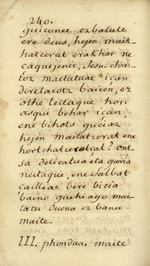 240.
guiconec ezbalute
ere deus, hejen mait-
hatcerat erakhar ne
caquejenic, Jesu-chris-
toz maitatuac ican
direlacotz baicen, ez
othe leitaque hori
asqui behar içan;
ene bihotz guç az
hejen maitatcerat ene
hortchatcecotcat? ont-
sa delicatua eta guria
neçtaque, ene Salbat
çailleac bere bicia
baino guehiago mai-
tatu duena ez banu
maite.
III. phondua. maite